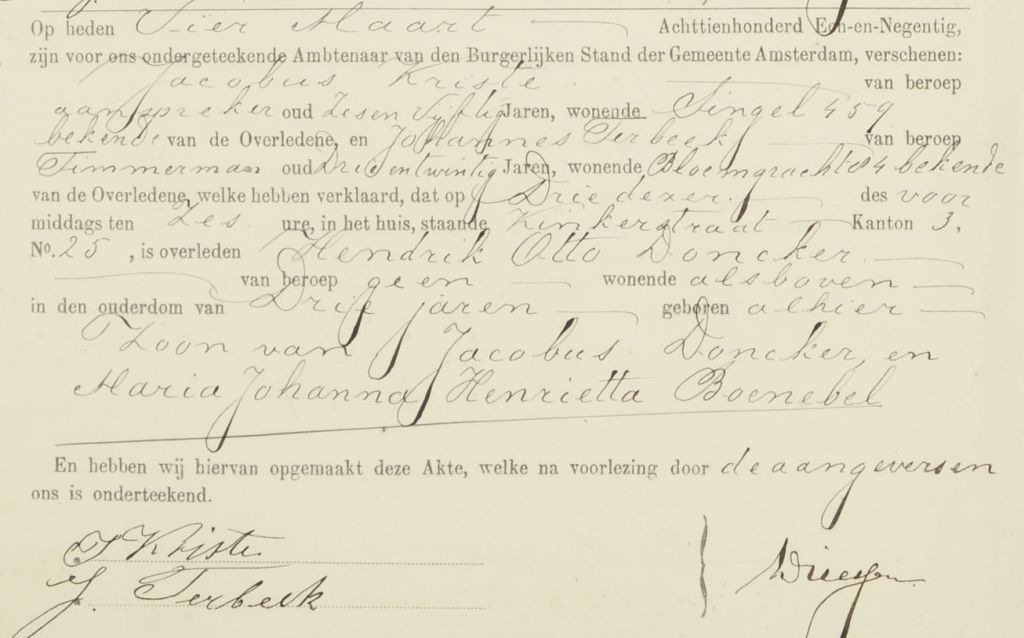 Op heden Vier Maart Achttienhonderd Een-en-Negentig,
zijn voor ons ondergeteekende Ambtenaar van den Burgerlijken Stand der Gemeente Amsterdam, verschenen:
Jacobus Kriste van beroep
aanspreker oud Zesen Vijftig Jaren, wonende Singel 459
bekende van de Overledene, en Johannes Terbeek van beroep
Timmerman oud Drie entwintig Jaren, wonende Bloemgracht 84 bekende
van de Overledene, welke hebben verklaard, dat op Drie dezer des voor
middags ten Zes ure, in het huis, staande Kinkerstraat Kanton 3,
No. 25, is overleden Hendrik Otto Doncker
van beroep geen wonende alsboven
in den ouderdom van Drie jaren geboren alhier
Zoon van Jacobus Doncker, en
Maria Johanna Henrietta Boenebel
En hebben wij hiervan opgemaakt deze Akte, welke na voorlezing door de aangevers en
ons is onderteekend.
J Kriste
J. Terbeek